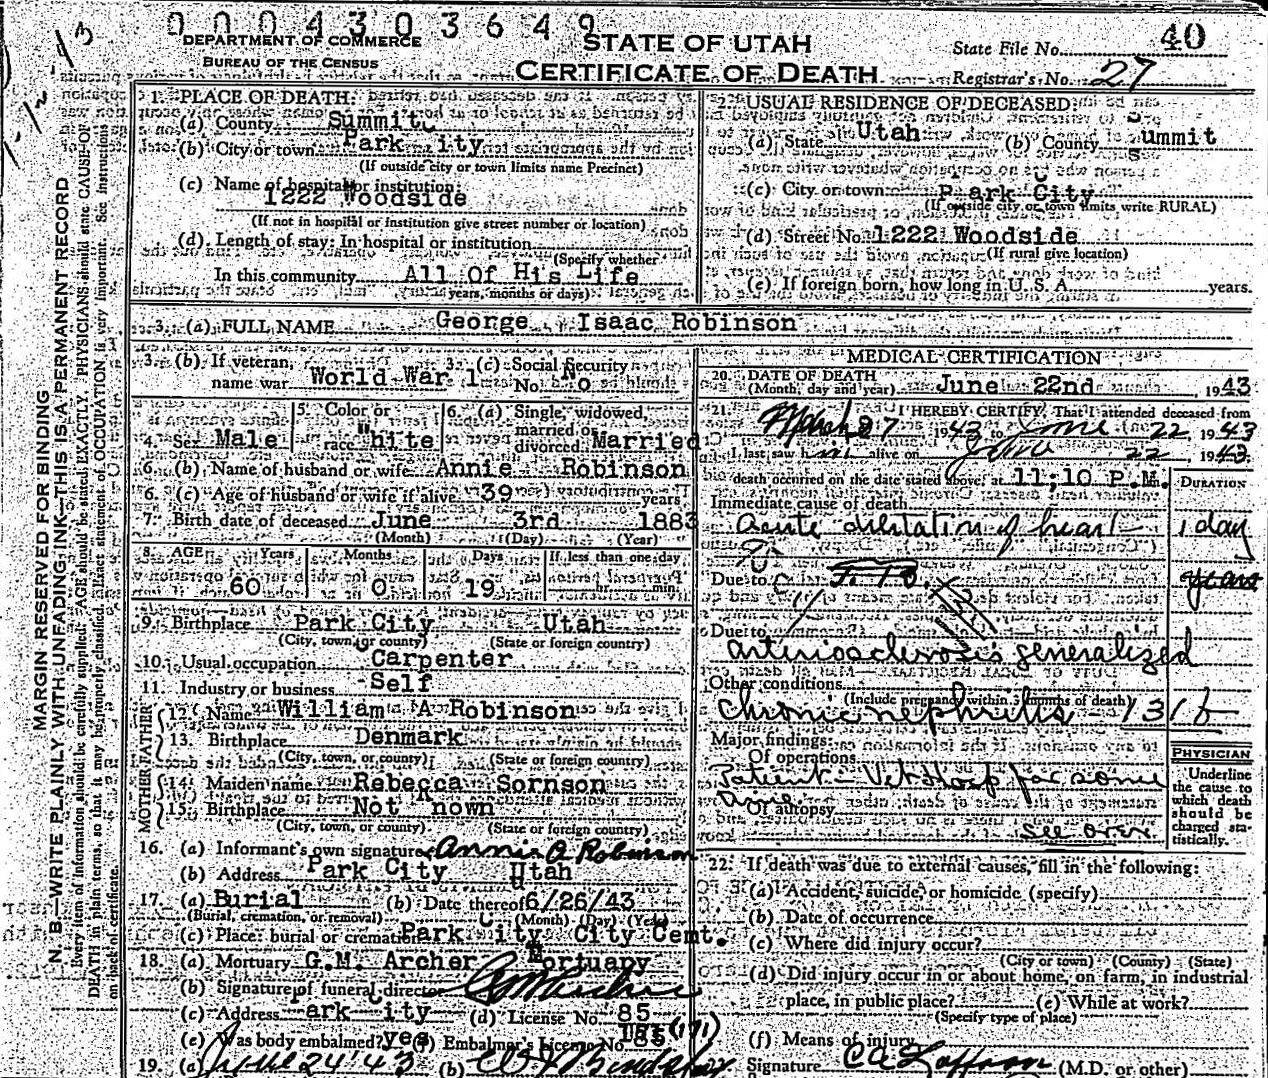 0 0 0 4 3 0 3 6 4 9
DEPARTMENT OF COMMERCE
BUREAU OF THE CENSUS
STATE OF UTAH
CERTIFICATE OF DEATH
State File No. 40
Registrar's No. 27
MARGIN RESERVED FOR BINDING
N. B.—WRITE PLAINLY WITH UNFADING INK—THIS IS A PERMANENT RECORD
Every item of information should be carefully supplied. AGE should be stated EXACTLY. PHYSICIANS should state CAUSE OF
DEATH in plain terms, so that it may be properly classified. Exact statement of OCCUPATION is very important. See instructions
on back of certificate.
1. PLACE OF DEATH:
(a) County Summit
(b) City or town Park City
(If outside city or town limits name Precinct)
(c) Name of hospital or institution:
1222 Woodside
(If not in hospital or institution give street number or location)
(d) Length of stay: In hospital or institution
(Specify whether
In this community All Of His Life
years, months or days)
2. USUAL RESIDENCE OF DECEASED:
(a) State Utah (b) County Summit
(c) City or town Park City
(If outside city or town limits write RURAL)
(d) Street No. 1222 Woodside
(If rural give location)
(e) If foreign born, how long in U. S. A. years.
3. (a) FULL NAME George Isaac Robinson
3. (b) If veteran, name war World War 1
3. (c) Social Security No. No
4. Sex Male
5. Color or race White
6. (a) Single, widowed, married or divorced Married
6. (b) Name of husband or wife Annie Robinson
6. (c) Age of husband or wife if alive 39 years
7. Birth date of deceased June 3rd 1883
(Month) (Day) (Year)
8. AGE Years Months Days If less than one day
60 0 19 hr. min.
9. Birthplace Park City Utah
(City, town, or county) (State or foreign country)
10. Usual occupation Carpenter
11. Industry or business Self
FATHER
12. Name William A Robinson
13. Birthplace Denmark
(City, town, or county) (State or foreign country)
MOTHER
14. Maiden name Rebecca Sornson
15. Birthplace Not Known
(City, town, or county) (State or foreign country)
16. (a) Informant's own signature Annie A Robinson
(b) Address Park City Utah
17. (a) Burial (b) Date thereof 6/26/43
(Burial, cremation, or removal) (Month) (Day) (Year)
(c) Place: burial or cremation Park City City Cemt.
18. (a) Mortuary G.M. Archer Mortuary
(b) Signature of funeral director GM Archer
(c) Address Park City (d) License No. 85
(e) Was body embalmed? yes (f) Embalmer's License No. 85 (171)
19. (a) June 24 '43 (b)
MEDICAL CERTIFICATION
20. DATE OF DEATH
(Month, day and year) June 22nd 1943
21. I HEREBY CERTIFY, That I attended deceased from
March 27 1943 to June 22, 1943
I last saw him alive on June 22, 1943
death occurred on the date stated above, at 11;10 P.M. m. DURATION
Immediate cause of death
Acute dilatation of heart 1 day
Due to years
Due to
arteriosclerosis generalized
Other conditions
(Include pregnancy within 3 months of death)
Chronic nephritis - 131 b
Major findings:
Of operations
Patient in Vet Hosp for some
time
Of autopsy
see over
PHYSICIAN
Underline
the cause to
which death
should be
charged sta-
tistically.
22. If death was due to external causes, fill in the following:
(a) Accident, suicide, or homicide (specify)
(b) Date of occurrence
(c) Where did injury occur?
(City or town) (County) (State)
(d) Did injury occur in or about home, on farm, in industrial
place, in public place? (e) While at work?
(Specify type of place)
(f) Means of injury
Signature (M.D. or other)